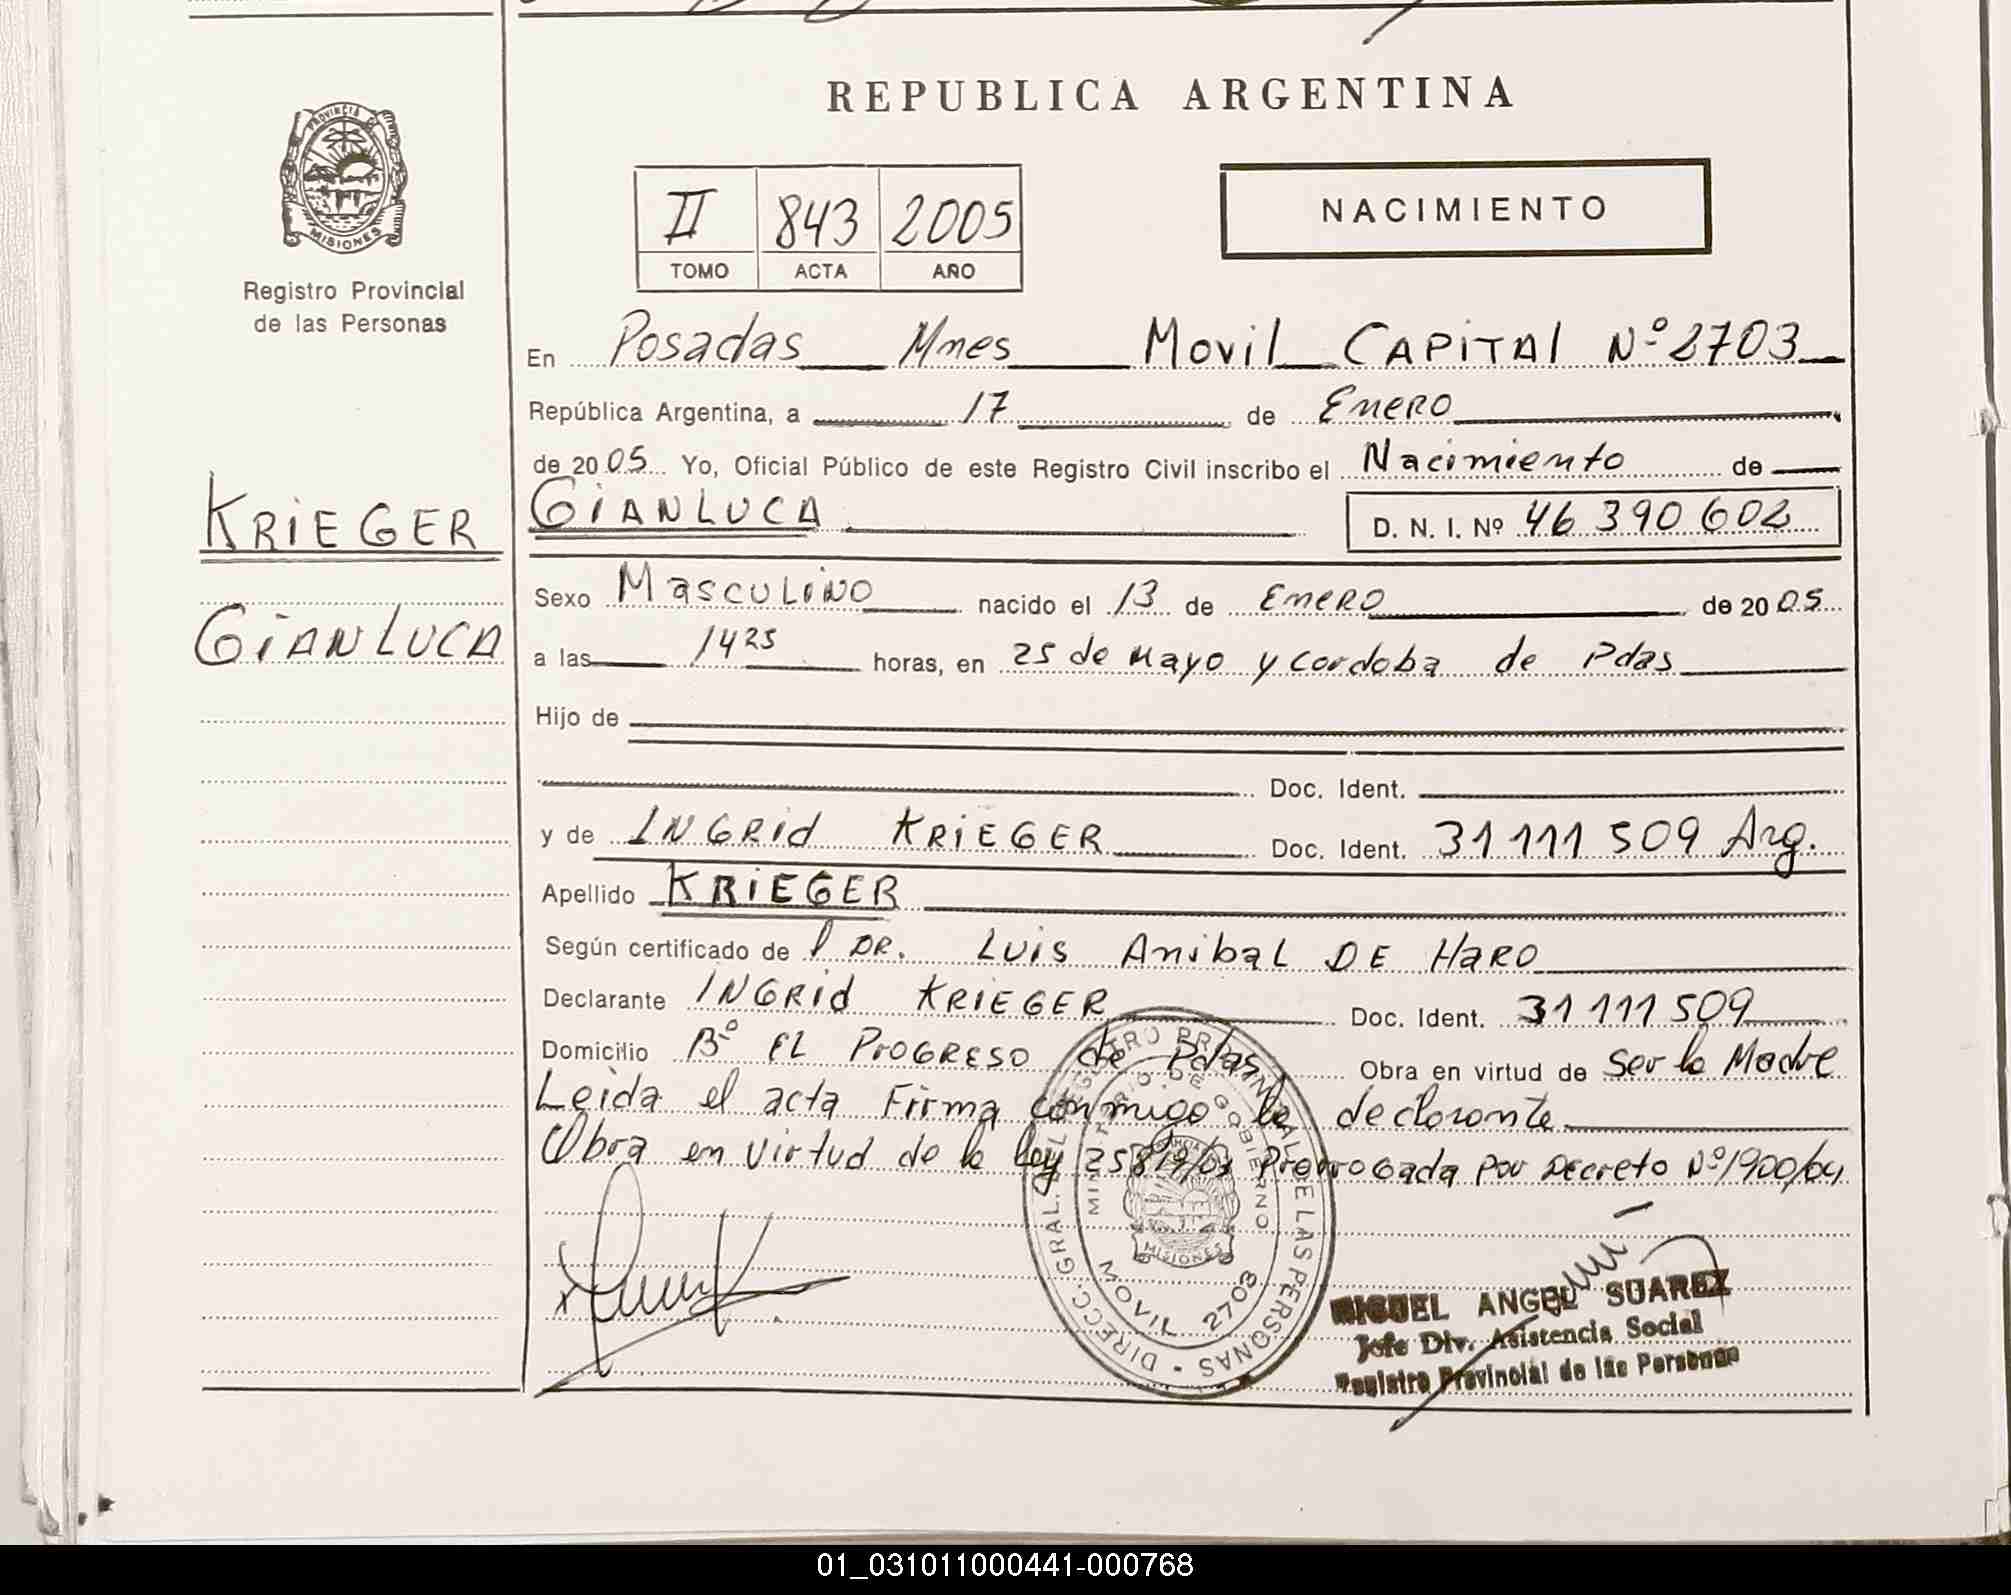 REPUBLICA ARGENTINA
PROVINCIA DE
MISIONES
Registro Provincial
de las Personas
II 843 2005
TOMO ACTA AÑO
NACIMIENTO
En Posadas Mnes Movil CAPITAL Nº 2703
República Argentina, a 17 de Enero
de 2005 Yo, Oficial Público de este Registro Civil inscribo el Nacimiento de
KRIEGER
GIANLUCA
GIANLUCA D. N. I. Nº 46 390 602
Sexo Masculino nacido el 13 de Enero de 2005
a las 1425 horas, en 25 de Mayo y Cordoba de Pdas
Hijo de
Doc. Ident.
y de INGRID KRIEGER Doc. Ident. 31 111 509 Arg.
Apellido KRIEGER
Según certificado de DR. Luis Anibal DE HARO
Declarante INGRID KRIEGER Doc. Ident. 31 111 509
Domicilio Bº EL PROGRESO de Pdas Obra en virtud de Ser la Madre
Leida el acta Firma conmigo la declarante
Obra en virtud de la ley 25819/03 Prorrogada por Decreto Nº 1900/04
DIRECC. GRAL. DEL REGISTRO PROVINCIAL DE LAS PERSONAS
MINISTERIO DE GOBIERNO
MISIONES
MOVIL 2703
MIGUEL ANGEL SUAREZ
Jefe Div. Asistencia Social
Registro Provincial de las Personas
01_031011000441-000768